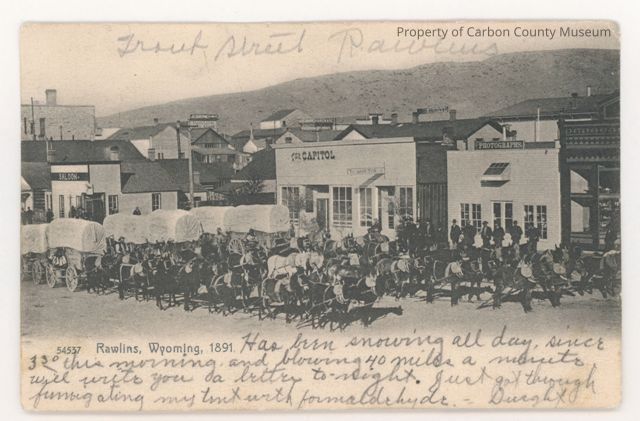 Property of Carbon County Museum
Front Street Rawlins
THE CAPITOL
PHOTOGRAPHS
SALOON
54537 Rawlins, Wyoming, 1891. Has been snowing all day, since
330 this morning and blowing 40 miles a minute
will write you a letter to-night. Just got through
fumigating my tent with formaldehyde. - Dwight